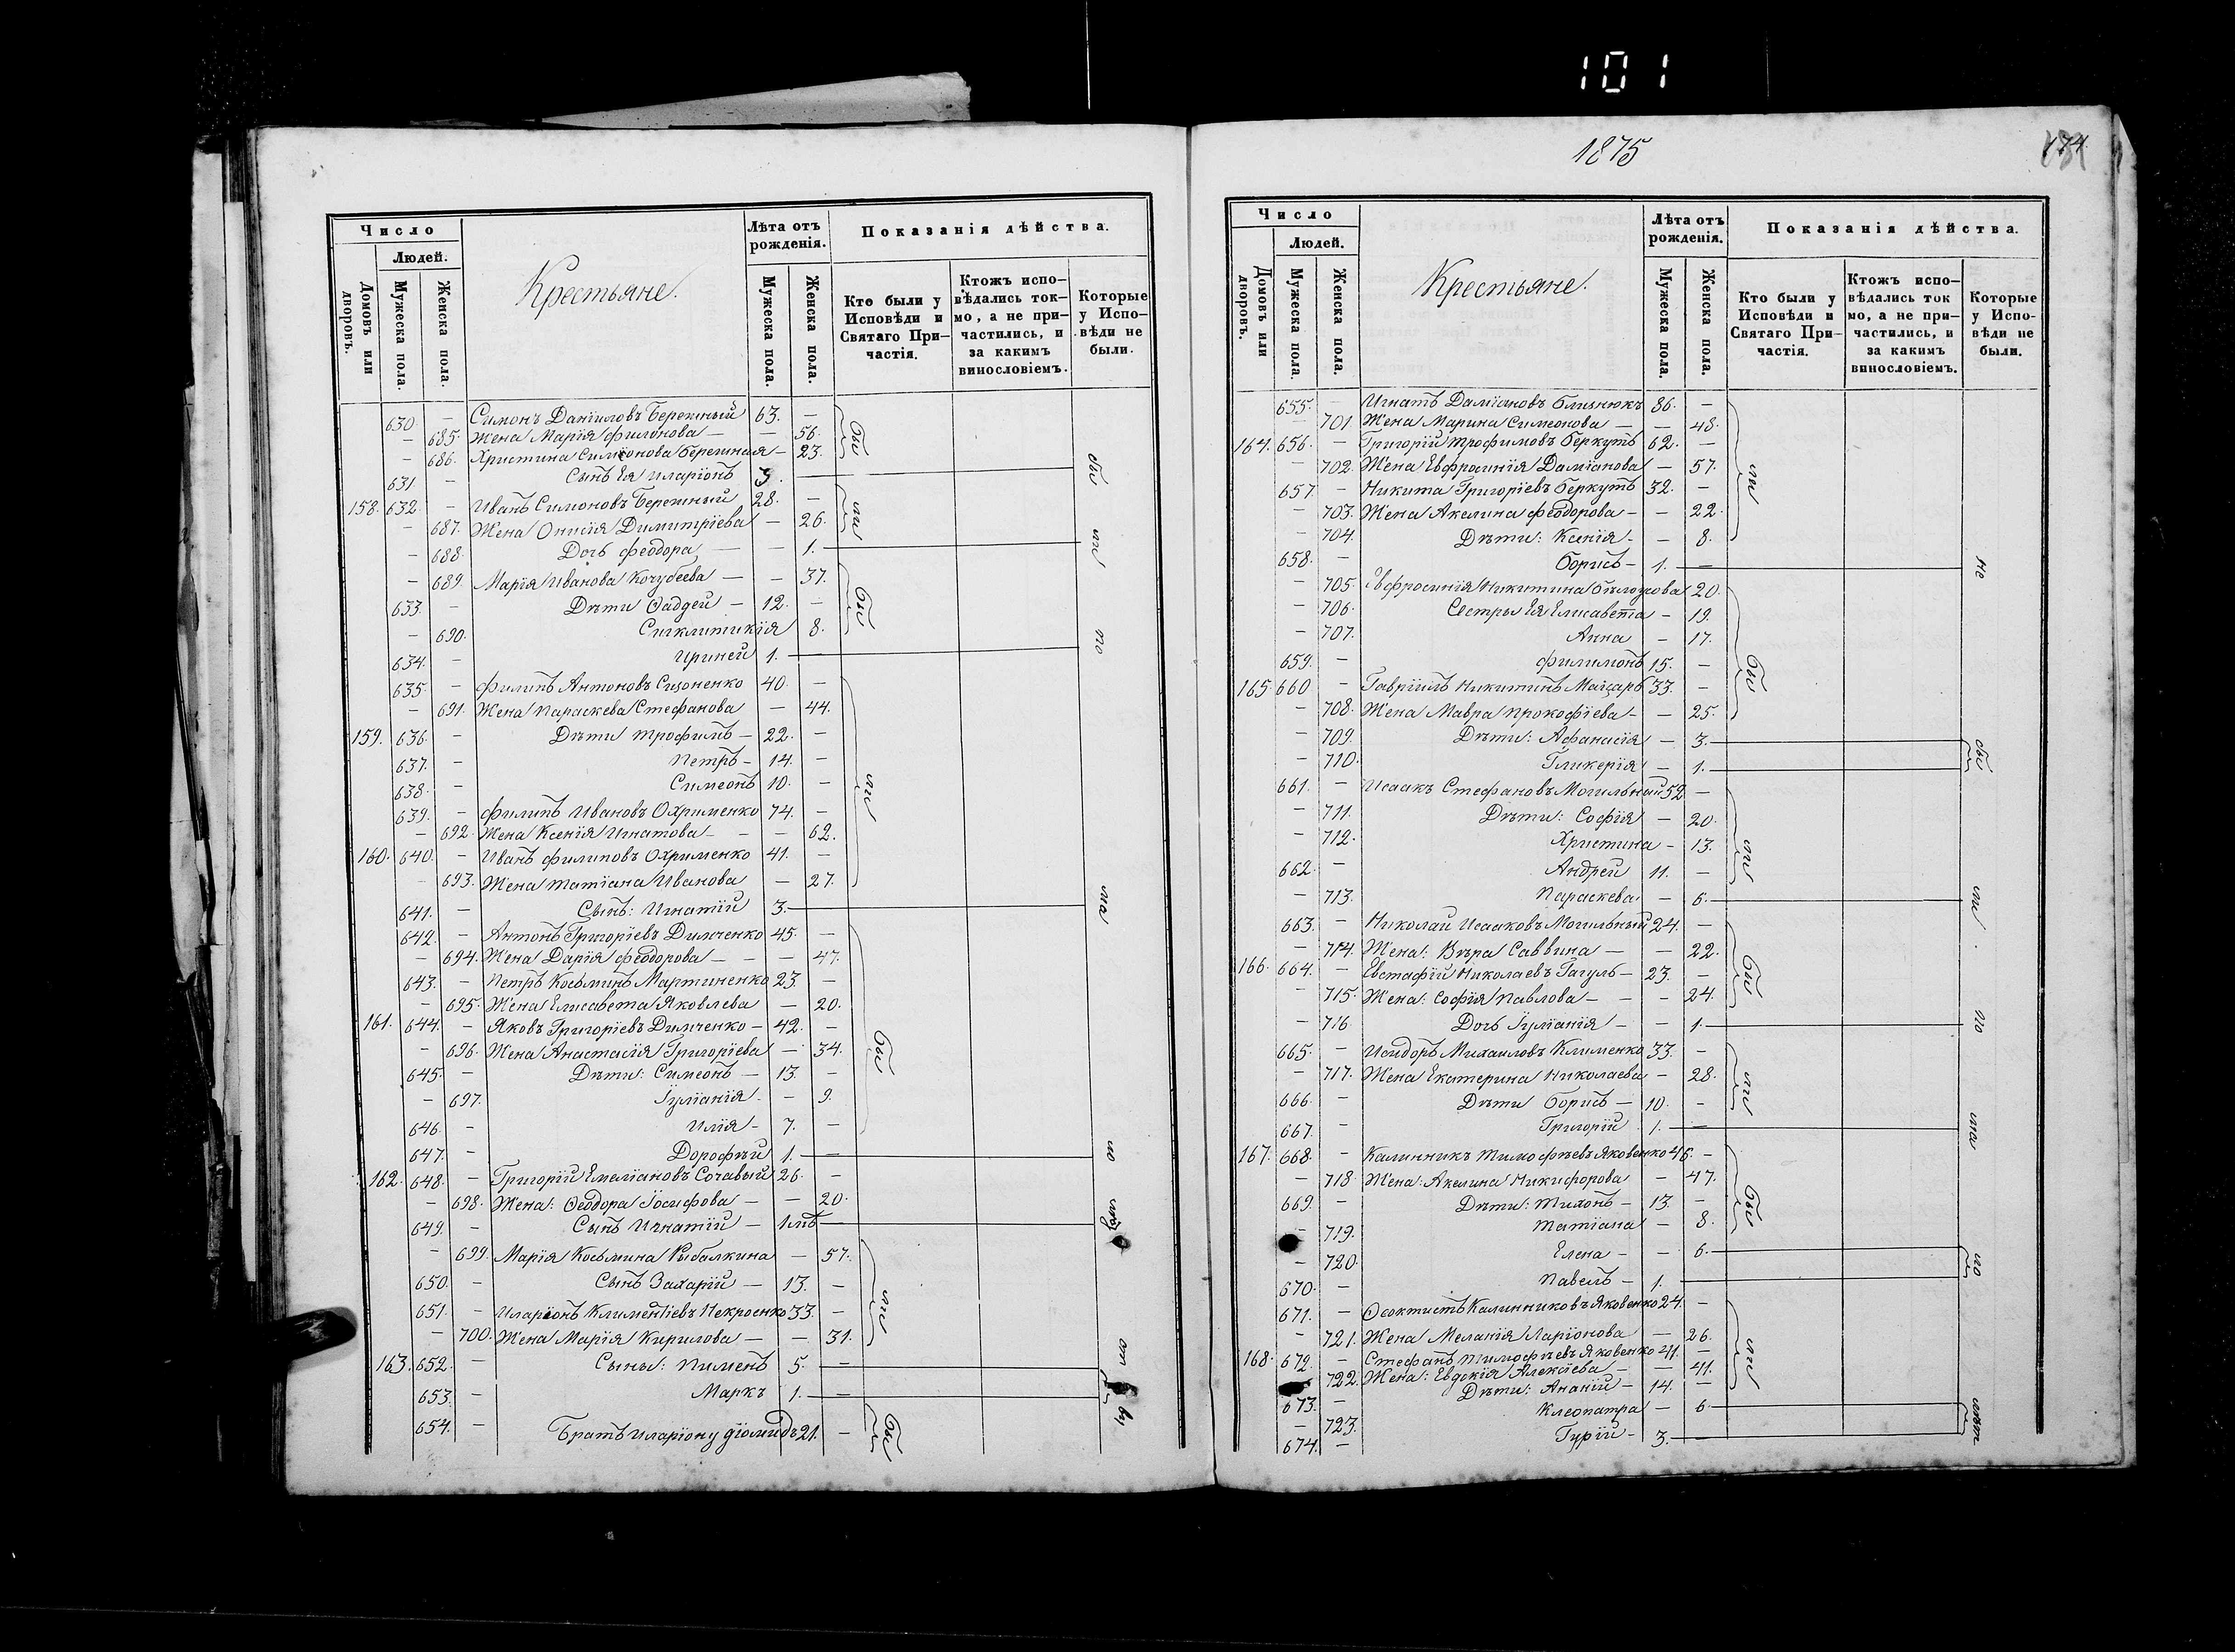 101
1875
174
Число
Людей.
Домовъ или дворовъ.
Мужеска пола.
Женска пола.
Крестьяне.
Лѣта отъ рожденія.
Мужеска пола.
Женска пола.
Показанія дѣйства.
Кто были у Исповѣди и Святаго При-
частія.
Ктожъ испо-
вѣдались ток-
мо, а не при-
частились, и
за какимъ
винословіемъ.
Которые
у Испо-
вѣди не
были.
630. — Симонъ Даніиловъ Бережный 63. —
— 685. Жена Марія Филонова — — 56.
— 686. Христина Симонова Бережная — 23.
631 — Сынъ Ея Иларіонъ 3.
158. 632. — Иванъ Симоновъ Бережный 28. —
— 687. Жена Онисія Димитріева — 26.
— 688. Дочь Феодора — — 1.
— 689. Марія Иванова Кочубеева — — 37.
633. — Дѣти Фадей — 12. —
— 690. Сигклитикія 8.
634. — Ириней 1.
635. — Филипъ Антоновъ Сизоненко 40. —
— 691. Жена Параскева Стефанова — 44.
159. 636. — Дѣти Трофимъ — 22. —
637. — Петръ — 14. —
638. — Симеонъ 10. —
639. — Филипъ Ивановъ Охрименко 74. —
— 692. Жена Ксенія Игнатова — — 62.
160. 640. — Иванъ Филиповъ Охрименко 41. —
693. Жена Татіана Иванова — 27.
641. — Сынъ: Игнатій 3.
642. — Антонъ Григоріевъ Димченко 45. —
— 694. Жена Дарія Феодорова — — 47.
643. — Петръ Косьминъ Мартиненко 23. —
— 695. Жена Елисавета Яковлева — 20.
161. 644. — Яковъ Григоріевъ Димченко — 42. —
— 696. Жена Анастасія Григоріева — 34.
645. — Дѣти: Симеонъ — 13. —
— 697. Іуліанія — — 9.
646. — Илія — 7. —
647. — Дорофей 1. —
162. 648. — Григорій Емеліановъ Сочавый 26. —
— 698. Жена: Феодора Іосифова — — 20.
649. — Сынъ Игнатій —
— 699. Марія Косьмина Рыбалкина — 57.
650. — Сынъ Захарій — 13. —
651. — Иларіонъ Климентіевъ 33. —
— 700. Жена Марія Кирилова — — 31.
163. 652. — Сыны: Пименъ 5. —
653. — Маркъ 1. —
654. — Братъ Иларіону Діомидъ 21. —
Число
Людей.
Домовъ или дворовъ.
Мужеска пола.
Женска пола.
Крестьяне.
Лѣта отъ рожденія.
Мужеска пола.
Женска пола.
Показанія дѣйства.
Кто были у Исповѣди и Святаго При-
частія.
Ктожъ испо-
вѣдались ток
мо, а не при-
частились, и
за какимъ
винословіемъ.
Которые
у Испо-
вѣди не
были.
655. — Игнатъ Даміановъ Близнюкъ 86. —
701 Жена Марина Симеонова — — 48.
164. 656. — Григорій Трофимовъ Беркутъ 62. —
— 702. Жена Евфросинія Даміанова — 57.
657. — Никита Григоріевъ Беркутъ 32. —
703. Жена Акилина Феодорова — — 22.
704. Дѣти: Ксенія — — 8.
658. — Борисъ — 1. —
— 705. Евфросинія Никитина Бѣлоусова 20.
— 706. Сестры Ея Елисавета — 19.
— 707. Анна — 17.
659. — Филимонъ 15. —
165. 660 — Гавріилъ Никитинъ 33. —
— 708. Жена Мавра Прокофіева — — 25.
— 709. Дѣти: Афанасія — 3.
— 710. Гликерія — 1.
661. — Исаакъ Стефановъ Могильный 52 —
— 711. Дѣти: Софія — 20.
— 712. Христина — 13.
662. — Андрей 11. —
— 713. Параскева — 6.
663. — Николай Исааковъ Могильный 24. —
— 714. Жена: Вѣра Саввина — — 22.
166. 664. — Евстафій Николаевъ Гагуль — 23. —
— 715. Жена: Софія Павлова — — — 24.
— 716. Дочь Іуліанія — — 1.
665. — Исидоръ Михаиловъ Клименко 33. —
— 717. Жена Екатерина Николаева — 28.
666. — Дѣти Борисъ — 10. —
667. — Григорій 1. —
167. 668. — Калинникъ Тимофѣевъ Яковенко 46. —
— 718. Жена: Акилина Никифорова — 47.
669. — Дѣти: Тихонъ — 13. —
— 719. Татіана — 8.
— 720. Елена — — 6.
670. — Павелъ — 1.
671. — Феоктистъ Калинниковъ Яковенко 24. —
— 721. Жена Меланія Ларіонова — 26.
168. 672. — Стефанъ Тимофѣевъ Яковенко 41. —
722. Жена: Евдокія Алексіева — — 41.
673. — Дѣти: Ананій — 14. —
— 723. Клеопатра — 6.
674. — Гурій — 3. —